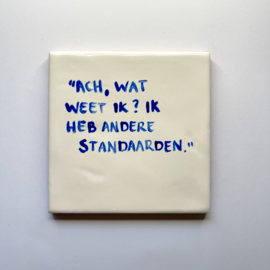 "ACH, WAT
WEET IK? IK
HEB ANDERE
STANDAARDEN."